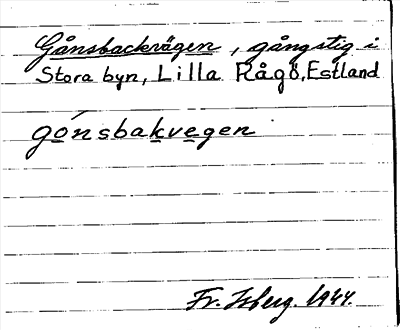 Gånsbackvägen, gångstig i
Stora byn, Lilla Rågö, Estland
gó̱nsbaḵve̱gen
Fr. Isberg. 1944.